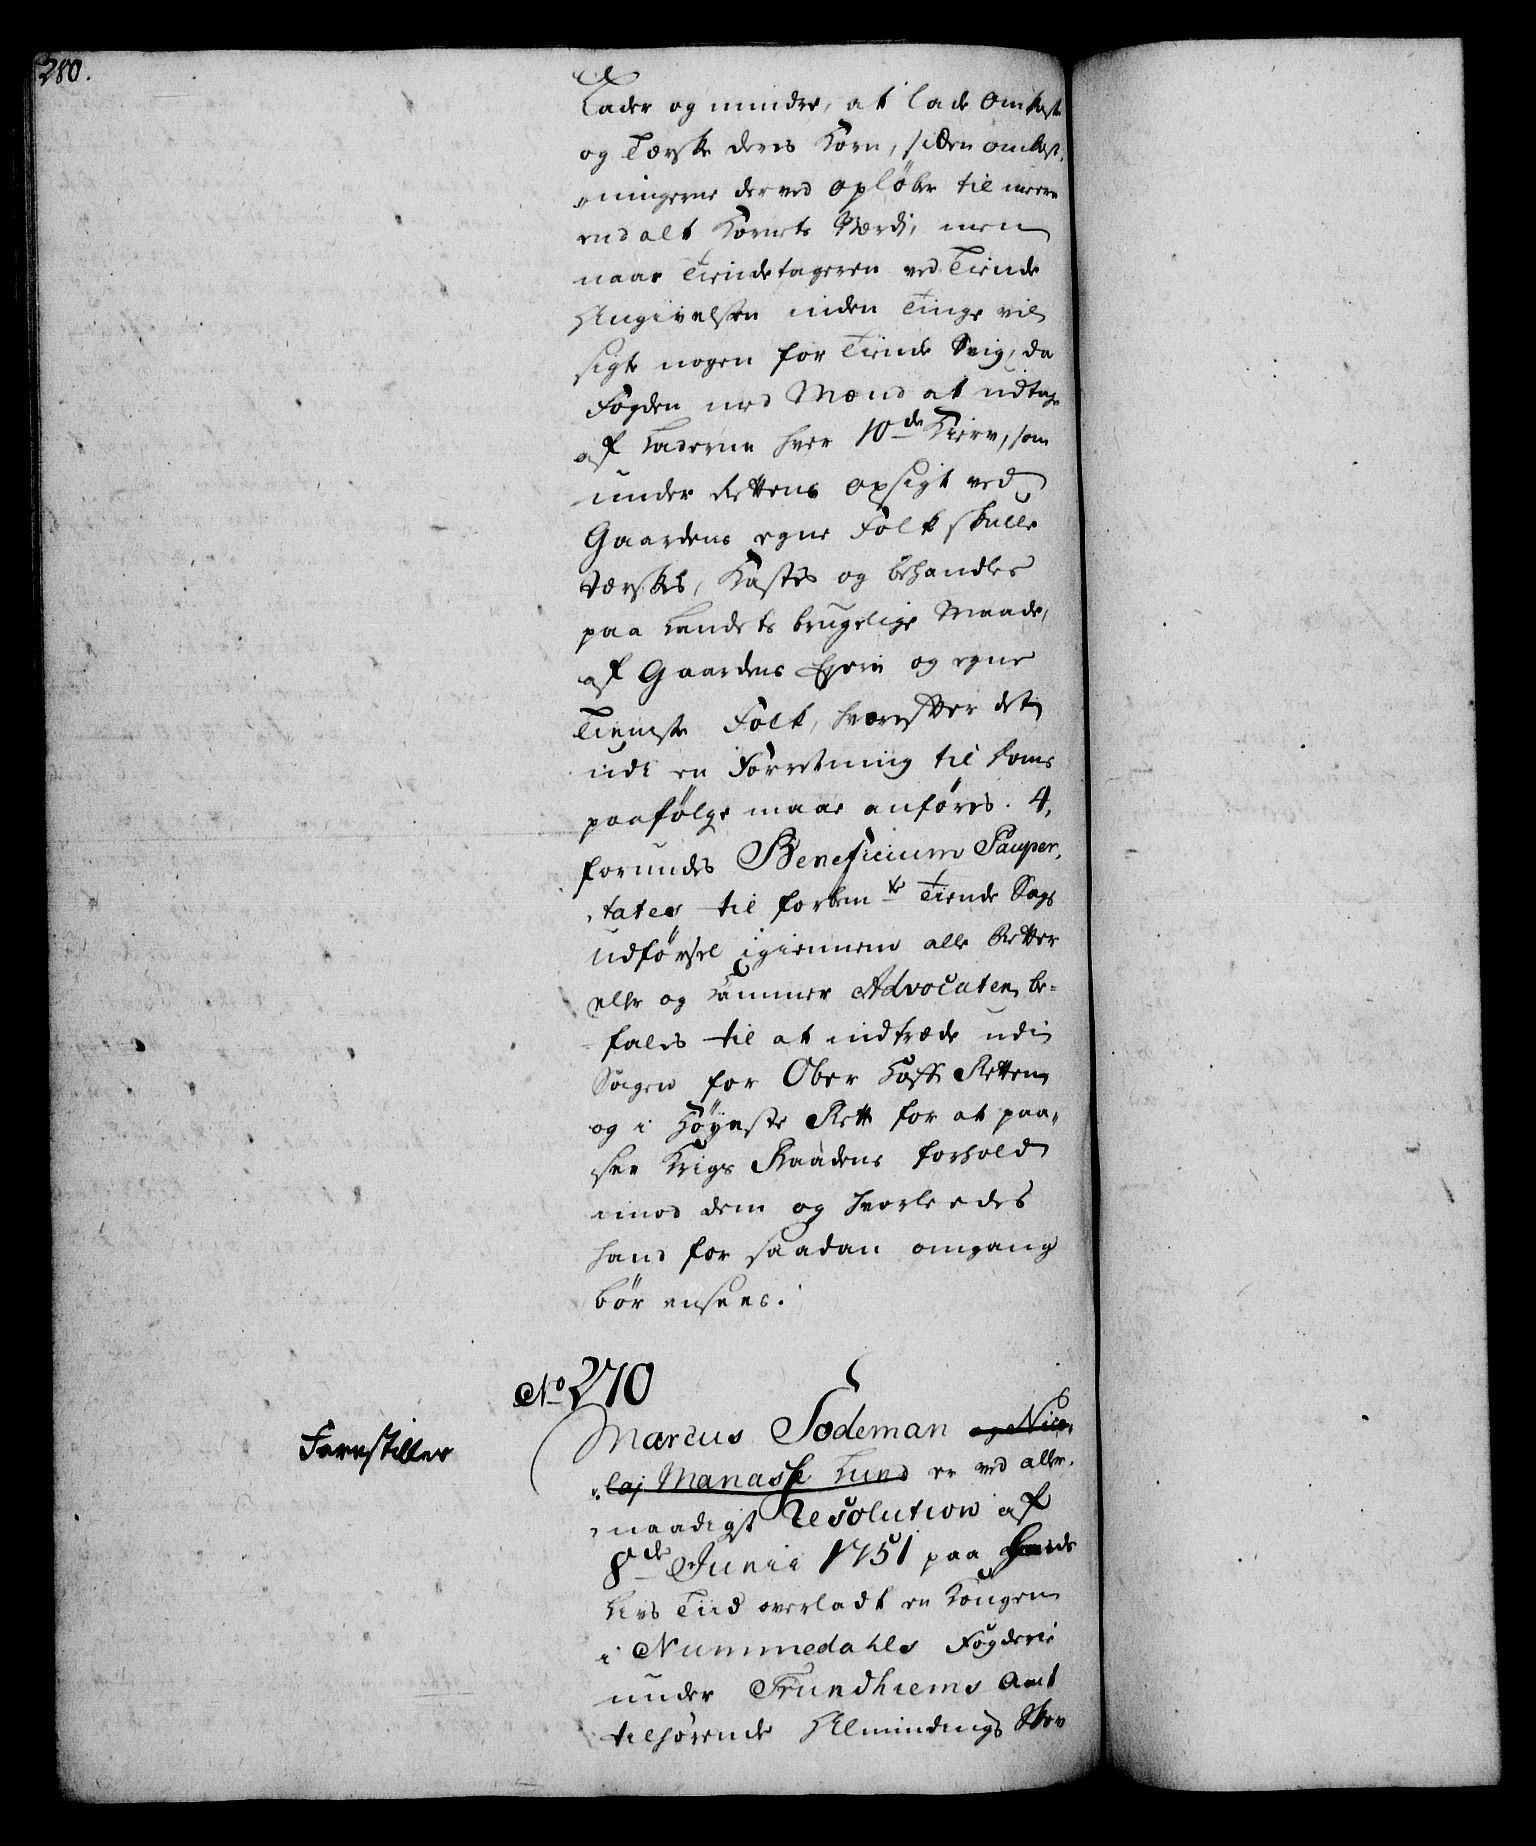 280.
Lader og mindre, at lade omkaste
og Tærske deres Korn, siden omkost,
,ningerne derved opløber til meere
end alt Kornets Værdi, men
naar Tiendetageren ved Tiende
Angivelsen inden Tinge vil
sigte nogen for Tiende Svig, da
Fogden med Mænd at udtage
af Laderne hver 10de Kierv, som
under Rettens opsigt ved
Gaardens egne Folk skulle
tærskes, Kastes og behandles
paa Landets brugelige Maade,
af Gaardens Ejere og egne
Tieneste Folk, hvorefter det
udi en Forretning til Doms
paafølge maae anføres. 4,
forundes Beneficium Pauper,
,tates til forbemte Tiende Sags
udførsel igiennem alle Retter
eller og Kammer Advocaten be=
=fales til at indtræde udi
Sagen for Ober Hoff Retten
og i Høyeste Rett for at paa,
see Krigs Raadens forhold
imod dem og hvorledes
hand for saadan omgang
bør ansees.
No 270
Forestiller
Marcus Sodeman og Nico,
,laj Manasse Lund er ved aller,
,naadigst Resolution af
8de Junii 1751 paa
Livs Tiid overladt en Kongen
i Nummedahls Fogderie
under Trundhiems Amt
tilhørende Almindings Skov